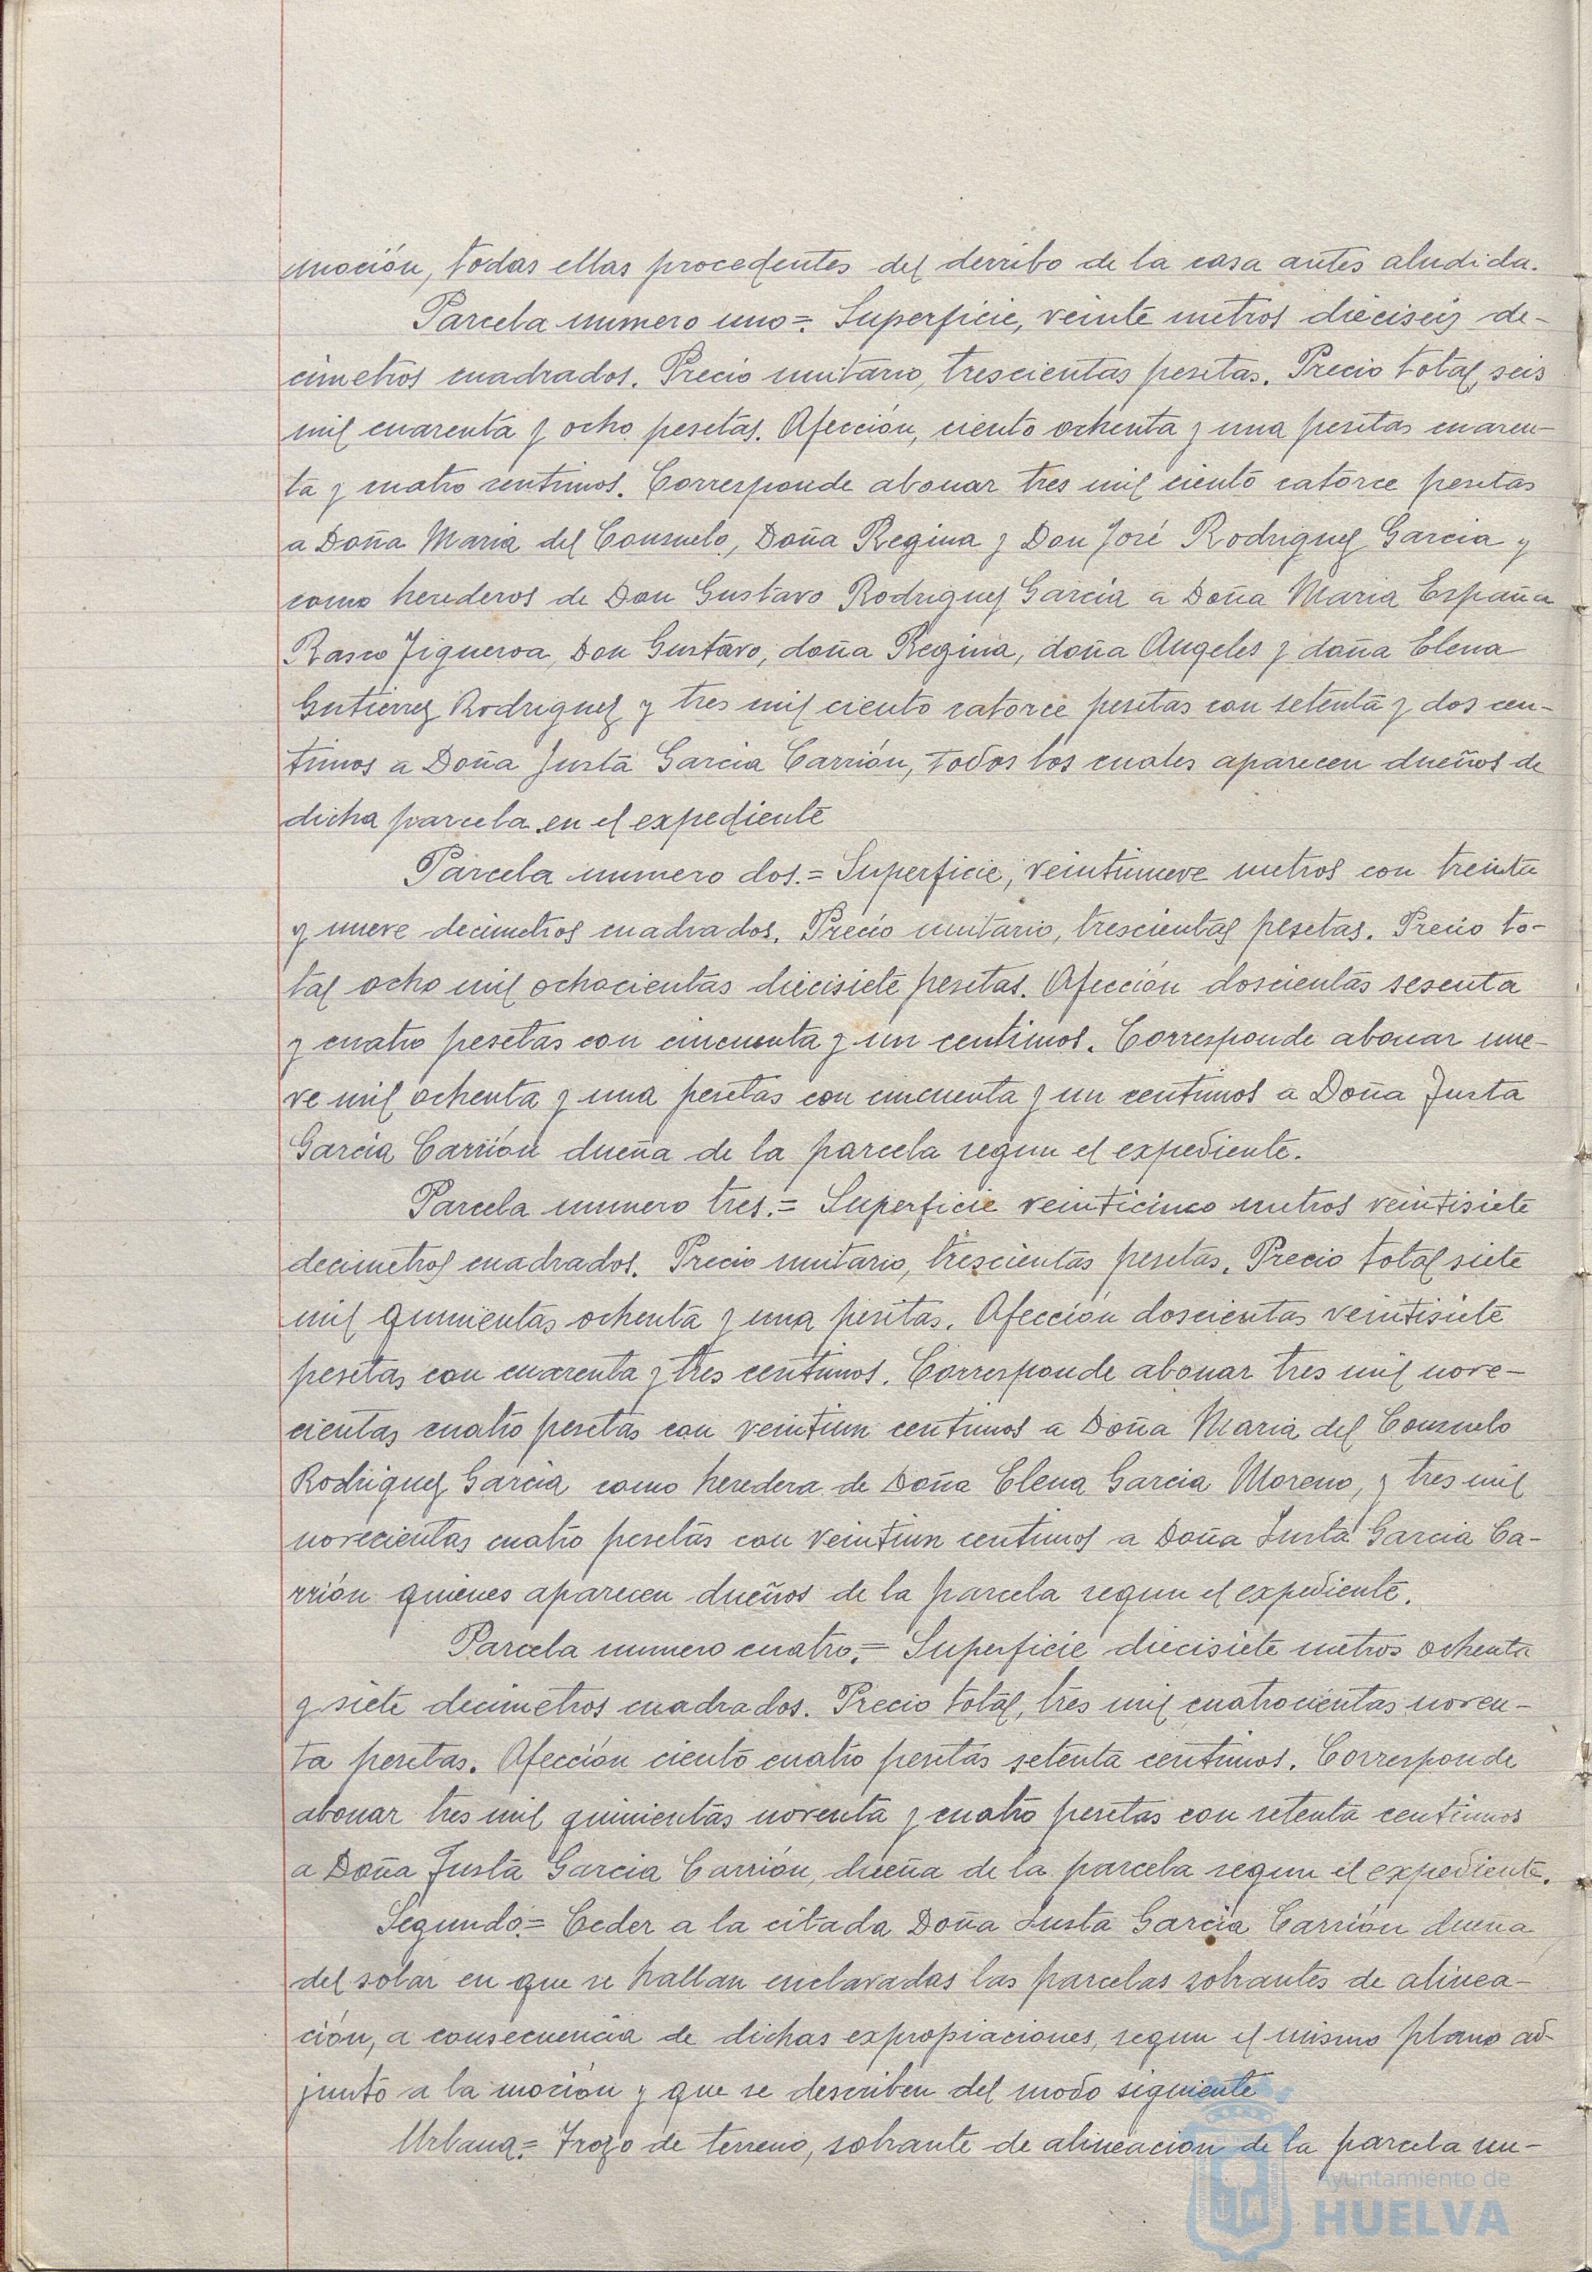 moción, todas ellas procedentes del derribo de la casa antes aludida.
Parcela numero uno=. Superficie, veinte metros dieciseis de-
cimetros cuadrados. Precio unitario, trescientas pesetas. Precio total, seis
mil cuarenta y ocho pesetas. Afección, ciento ochenta y una pesetas cuaren-
ta y cuatro centimos. Corresponde abonar tres mil ciento catorce pesetas
a Doña Maria del Consuelo, Doña Regina y Don José Rodriguez Garcia y
como herederos de Don Gustavo Rodriguez Garcia a Doña Maria España
Rasco Figueroa, Don Gustavo, doña Regina, doña Angeles y doña Elena
Gutierrez Rodriguez y tres mil ciento catorce pesetas con setenta y dos cen-
timos a Doña Justa Garcia Carrión, todos los cuales aparecen dueños de
dicha parcela en el expediente
Parcela numero dos.= Superficie, veintinueve metros con treinta
y nueve decimetros cuadrados. Precio unitario, trescientas pesetas. Precio to-
tal ocho mil ochocientas diecisiete pesetas. Afección doscientas sesenta
y cuatro pesetas con cincuenta y un centimos. Corresponde abonar nue-
ve mil ochenta y una pesetas con cincuenta y un centimos a Doña Justa
Garcia Carrión dueña de la parcela segun el expediente.
Parcela numero tres.= Superficie veinticinco metros veintisiete
decimetros cuadrados. Precio unitario, trescientas pesetas. Precio total siete
mil quinientas ochenta y una pesetas. Afección doscientas veintisiete
pesetas con cuarenta y tres centimos. Corresponde abonar tres mil nove-
cientas cuatro pesetas con veintiun centimos a Doña Maria del Consuelo
Rodriguez Garcia como heredera de Doña Elena Garcia Moreno, y tres mil
novecientas cuatro pesetas con veintiun centimos a Doña Justa Garcia Ca-
rrión quienes aparecen dueños de la parcela segun el expediente.
Parcela numero cuatro.= Superficie diecisiete metros ochenta
y siete decimetros cuadrados. Precio total, tres mil cuatrocientas noven-
ta pesetas. Afección ciento cuatro pesetas setenta centimos. Corresponde
abonar tres mil quinientas noventa y cuatro pesetas con setenta centimos
a Doña Justa Garcia Carrión, dueña de la parcela segun el expediente.
Segundo.= Ceder a la citada Doña Justa Garcia Carrión dueña
del solar en que se hallan enclavadas las parcelas sobrantes de alinea-
ción, a consecuencia de dichas expropiaciones, segun el mismo plano ad-
junto a la moción y que se describen del modo siguiente
Urbana.= Trozo de terreno, sobrante de alineación de la parcela nu-
Ayuntamiento de
HUELVA